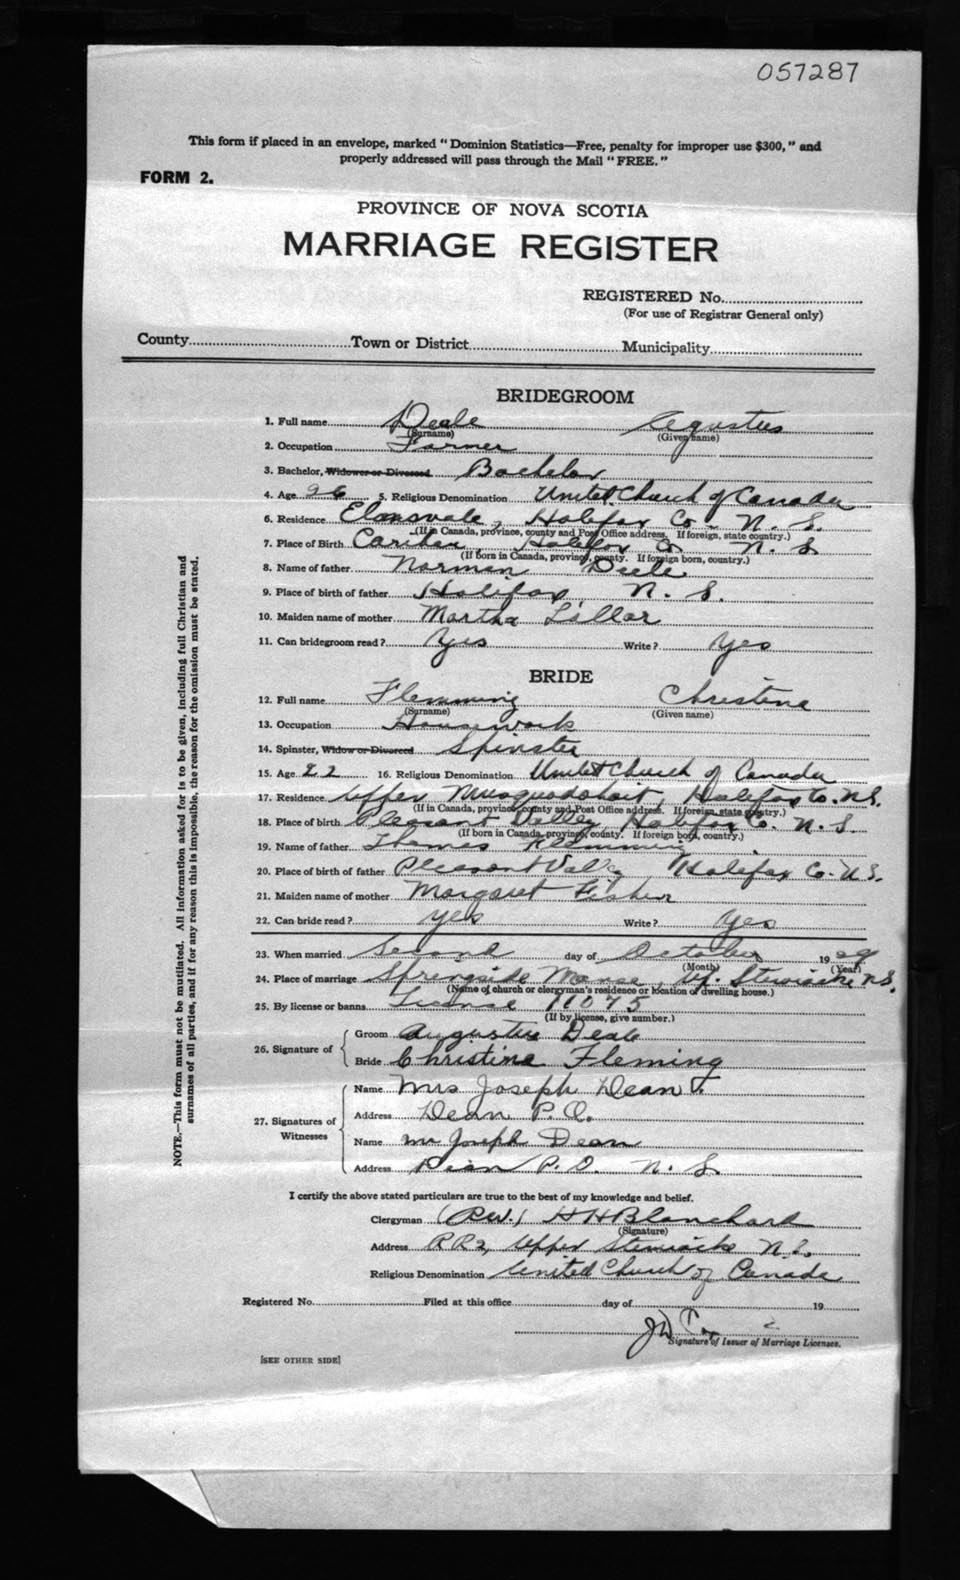 057287
This form if placed in an envelope, marked "Dominion Statistics—Free, penalty for improper use $300," and
properly addressed will pass through the Mail "FREE."
FORM 2.
PROVINCE OF NOVA SCOTIA
MARRIAGE REGISTER
REGISTERED No.
(For use of Registrar General only)
County Town or District Municipality
BRIDEGROOM
1. Full name Deale Agustus
(Surname) (Given name)
2. Occupation Farmer
3. Bachelor, Widower or Divorced Bachelor
4. Age 26 5. Religious Denomination United Church of Canada
6. Residence Elmsvale, Halifax Co. N. S.
(If in Canada, province, county and Post Office address. If foreign, state country.)
7. Place of Birth Halifax Co N. S
(If born in Canada, province, county. If foreign born, country.)
8. Name of father Norman Deele
9. Place of birth of father Halifax N. S.
10. Maiden name of mother Martha
11. Can bridegroom read? Yes Write? Yes
BRIDE
12. Full name Flemming Christena
(Surname) (Given name)
13. Occupation Housework
14. Spinster, Widow or Divorced Spinster
15. Age 22 16. Religious Denomination United Church of Canada
17. Residence Upper Musquodoboit, Halifax Co. N.S.
(If in Canada, province county and Post Office address. If foreign, state country.)
18. Place of birth Pleasant Valley, Halifax Co. N. S
(If born in Canada, province, county. If foreign born, country.)
19. Name of father Thomas Flemming
20. Place of birth of father Pleasant Valley Halifax Co. N.S.
21. Maiden name of mother Margaret Fisher
22. Can bride read? yes Write? Yes
23. When married Second day of October 1929
(Month) (Year)
24. Place of marriage Springside Manse, Up. Stewiacke N.S.
(Name of church or clergyman's residence or location of dwelling house.)
25. By license or banns License 11075
(If by license, give number.)
26. Signature of Groom Augustus Deale
Bride Christina Fleming
27. Signatures of Witnesses Name Mrs Joseph Dean
Address Dean P.O.
Name Mr Joseph Dean
Address Dean P.O. N. S.
I certify the above stated particulars are true to the best of my knowledge and belief.
Clergyman (Rev.) H H Blanchard
(Signature)
Address R R 2, Upper Stewiacke N.S.
Religious Denomination United Church of Canada
Registered No. Filed at this office day of 19
Signature of Issuer of Marriage Licenses.
[SEE OTHER SIDE]
NOTE.—This form must not be mutilated. All information asked for is to be given, including full Christian and
surnames of all parties, and if for any reason this is impossible, the reason for the omission must be stated.